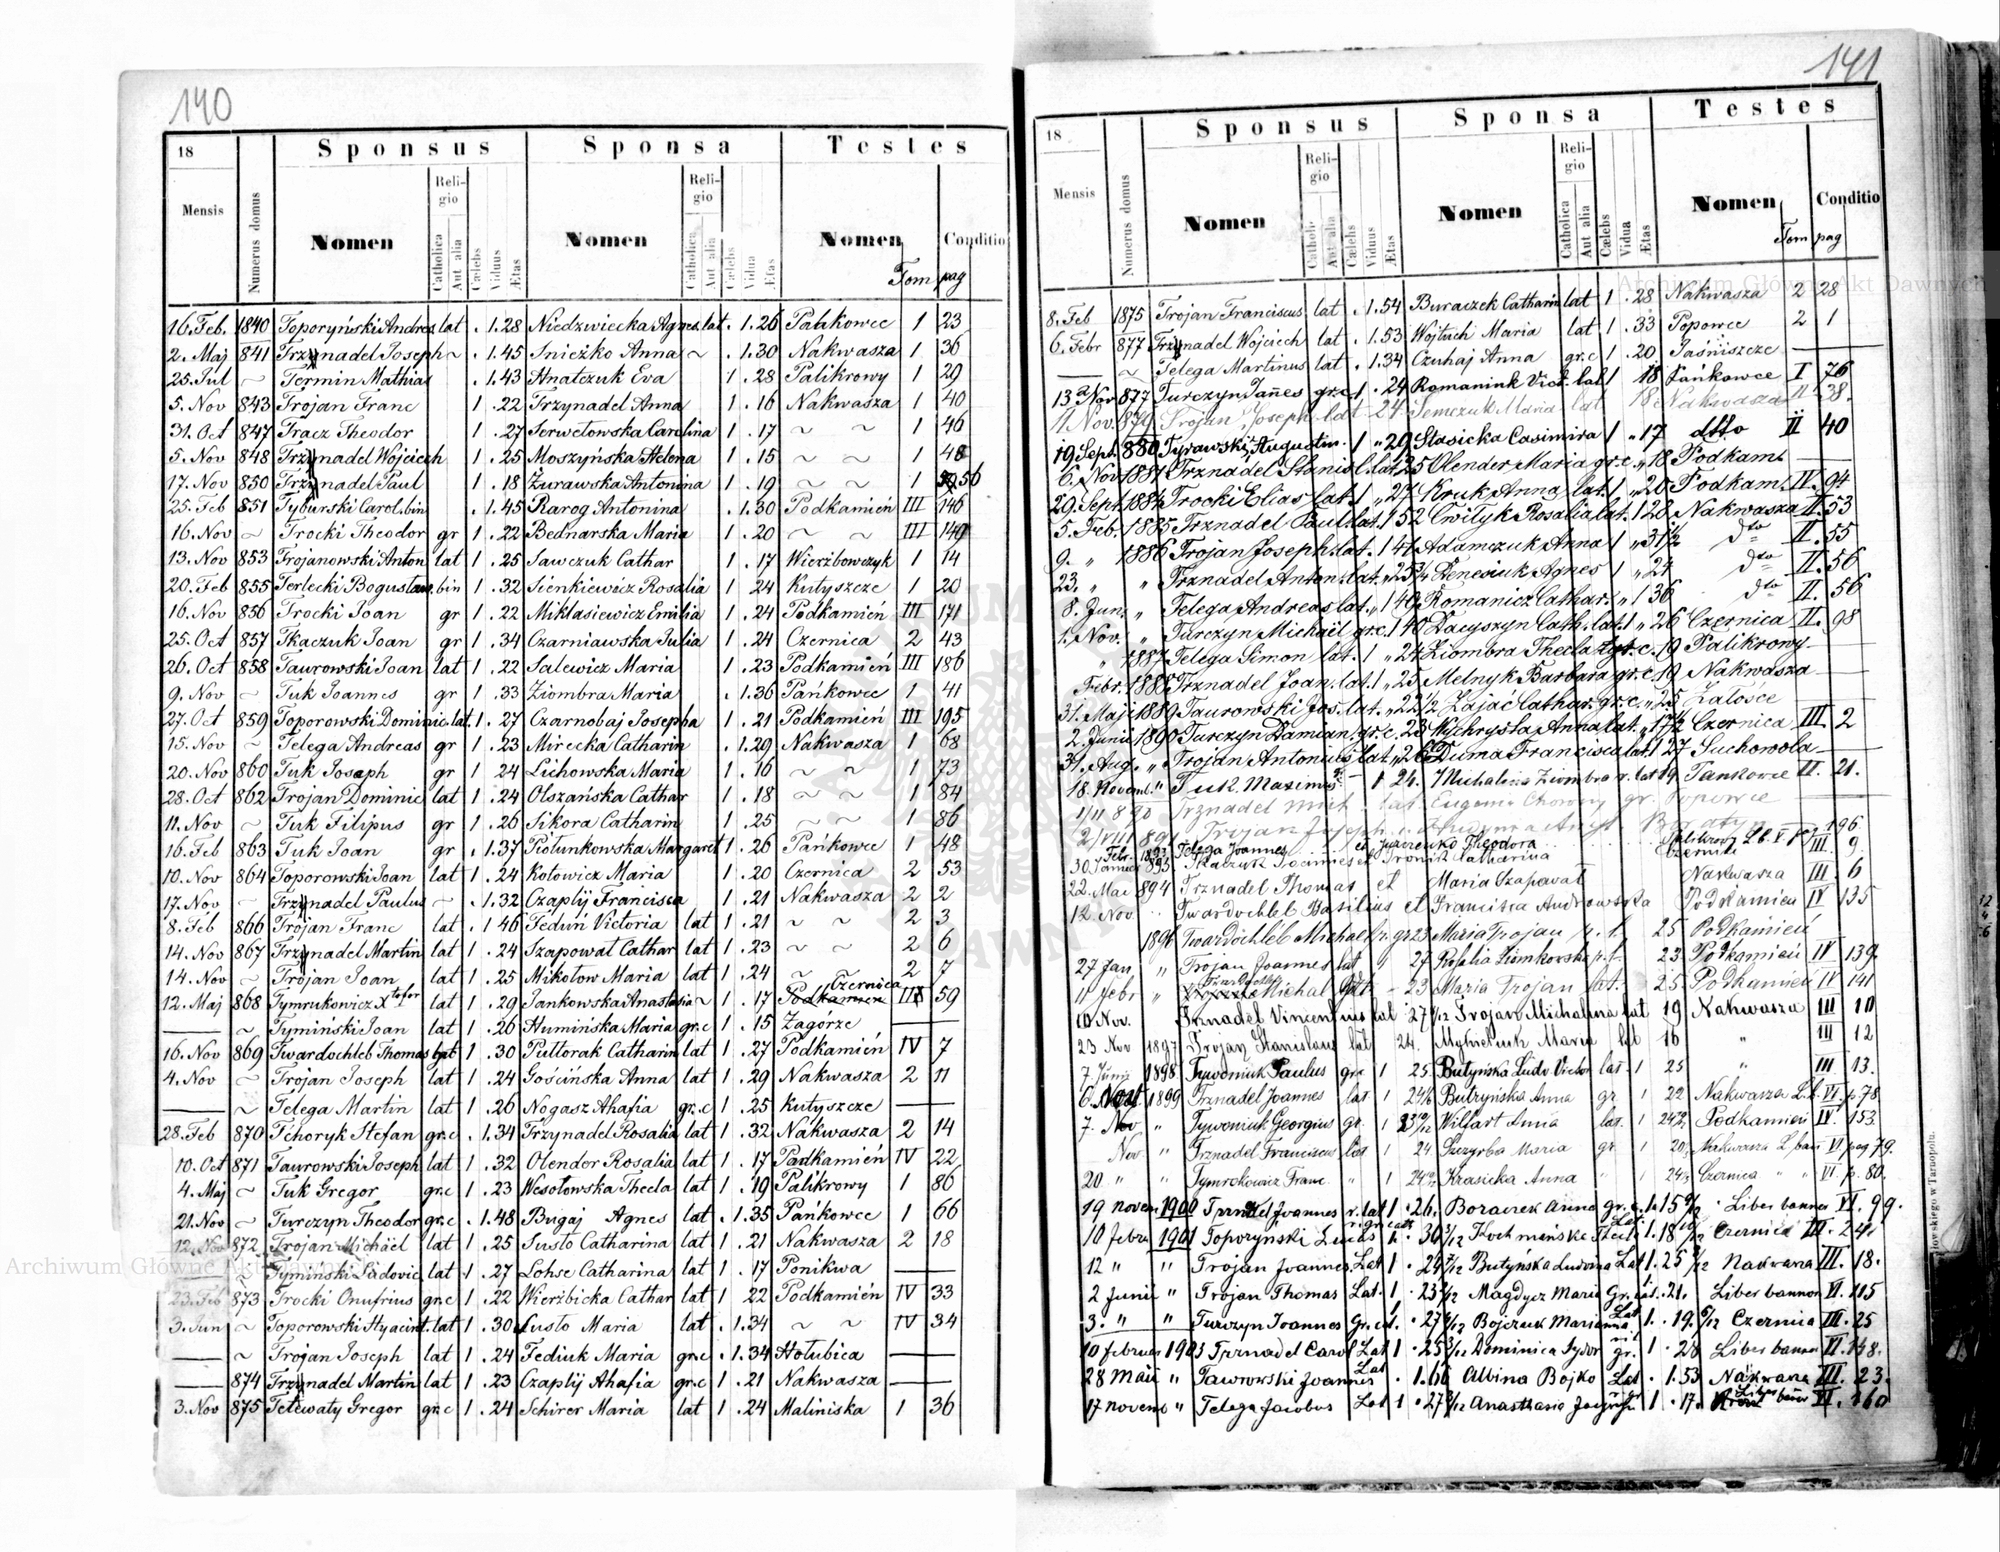 140
18
Sponsus
Sponsa
Testes
Mensis
Numerus domus
Nomen
Religio
Catholica
Aut alia
Cælebs
Viduus
Ætas
Nomen
Religio
Catholica
Aut alia
Cælebs
Vidua
Ætas
Nomen
Conditio
Tom pag
16. Feb. 1840 Toporyński Andreas lat . 1.28 Niedzwiecka Agnes lat . 1.26 Palikowce 1 23
2. Maj 841 Trzynadel Joseph ~ . 1.45 Snieżko Anna ~ . 1.30 Nakwasza 1 36
25. Jul ~ Termin Mathias . 1.43 Hnatczuk Eva 1 . 28 Palikrowy 1 29
5. Nov 843 Trojan Franc 1 . 22 Trzynadel Anna 1 . 16 Nakwasza 1 40
31. Oct 847 Tracz Theodor 1 . 27 Serwetowska Carolina 1 . 17 ~ ~ 1 46
5. Nov 848 Trzynadel Wojciech 1 . 25 Moszyńska Helena 1 . 15 ~ ~ 1 48
17. Nov 850 Trzynadel Paul 1 . 18 Żurawska Antonina 1 . 19 ~ ~ 1 56
25. Feb 851 Tyburski Carol. bin . 1.45 Rarog Antonina . 1.30 Podkamień III 146
16. Nov ~ Trocki Theodor gr 1 . 22 Bednarska Maria 1 . 20 ~ ~ III 149
13. Nov 853 Trojanowski Anton lat 1 . 25 Sawczuk Cathar 1 . 17 Wierzbowczyk 1 14
20. Feb 855 Terlecki Bogusław. bin 1 . 32 Sienkiewicz Rosalia 1 24 Kutyszcze 1 20
16. Nov 856 Trocki Joan gr 1 . 22 Miklasiewicz Emilia 1 . 24 Podkamień III 171
25. Oct 857 Tkaczuk Joan gr 1 . 34 Czarniawska Julia 1 . 24 Czernica 2 43
26. Oct 858 Taurowski Joan lat 1 . 22 Salewicz Maria 1 . 23 Podkamień III 186
9. Nov ~ Tuk Joannes gr 1 . 33 Ziombra Maria . 1.36 Pańkowce 1 41
27. Oct 859 Toporowski Dominic. lat. 1 . 27 Czarnobaj Josepha 1 . 21 Podkamień III 195
15. Nov ~ Telega Andreas gr 1 . 23 Mirecka Catharin . 1.29 Nakwasza 1 68
20. Nov 860 Tuk Joseph gr 1 24 Lichowska Maria 1 . 16 ~ ~ 1 73
28. Oct 862 Trojan Dominic lat 1 . 24 Olszańska Cathar 1 . 18 ~ ~ 1 84
11. Nov ~ Tuk Filipus gr 1 . 26 Sikora Catharin 1 . 25 ~ ~ 1 86
16. Feb 863 Tuk Joan gr . 1.37 Piotunkowska Margaret 1 . 26 Pańkowce 1 48
10. Nov 864 Toporowski Joan lat 1 . 24 Kotowicz Maria 1 . 20 Czernica 2 53
17. Nov ~ Trzynadel Paulus ~ . 1.32 Czaplij Francisca 1 . 21 Nakwasza 2 2
8. Feb 866 Trojan Franc lat . 1 46 Feduń Victoria lat 1 . 21 ~ ~ 2 3
14. Nov 867 Trzynadel Martin lat 1 . 24 Szapował Cathar lat 1 . 23 ~ ~ 2 6
14. Nov ~ Trojan Joan lat 1 . 25 Mikołow Maria lat 1 . 24 ~ 2 7
12. Maj 868 Tymrukowicz Xtofor lat 1 . 29 Jankowska Anastasia ~ 1 . 17 Podkamień Czernica III 59
~ Tymiński Joan lat 1 . 26 Humińska Maria gr.c 1 . 15 Zagórze
16. Nov 869 Twardochleb Thomas lat 1 . 30 Pułtorak Catharin lat 1 . 27 Podkamień IV 7
4. Nov ~ Trojan Joseph lat 1 . 24 Gościńska Anna lat 1 . 29 Nakwasza 2 11
~ Telega Martin lat 1 . 26 Nogasz Ahafia gr.c 1 . 25 Kutyszcze
28. Feb 870 Tchoryk Stefan gr.c . 1.34 Trzynadel Rosalia lat 1 . 32 Nakwasza 2 14
10. Oct 871 Taurowski Joseph lat 1 . 32 Olender Rosalia lat 1 . 17 Podkamień IV 22
4. Maj ~ Tuk Gregor gr.c 1 . 23 Wesołowska Thecla lat 1 . 19 Palikrowy 1 86
21. Nov ~ Turczyn Theodor gr.c . 1.48 Bugaj Agnes lat . 1.35 Pańkowce 1 66
12. Nov 872 Trojan Michael lat 1 . 25 Susto Catharina lat 1 . 21 Nakwasza 2 18
~ Tymiński Ludovic lat 1 . 27 Lohse Catharina lat 1 . 17 Ponikwa
23. Feb 873 Trocki Onufrius gr.c 1 . 22 Wierzbicka Cathar lat 1 22 Podkamień IV 33
3. Jun ~ Toporowski Hyacint. lat 1 . 30 Susto Maria lat . 1.34 ~ ~ IV 34
~ Trojan Joseph lat 1 . 24 Fediuk Maria gr.c . 1.34 Hołubica
874 Trzynadel Martin lat 1 . 23 Czaplij Ahafia gr.c 1 . 21 Nakwasza
3. Nov 875 Telewaty Gregor gr.c 1 . 24 Schirer Maria lat 1 . 24 Maliniska 1 36
141
18
Sponsus
Sponsa
Testes
Mensis
Numerus domus
Nomen
Religio
Aut alia
Cælebs
Viduus
Ætas
Nomen
Religio
Catholica
Aut alia
Cælebs
Vidua
Ætas
Nomen
Conditio
Tom pag
8. Feb 1875 Trojan Franciscus lat . 1.54 Buraczek Catharin lat 1 . 28 Nakwasza 2 28
6. Febr 877 Trzynadel Wojciech lat . 1.53 Wojtuch Maria lat 1 . 33 Popowce 2 1
~ Telega Martinus lat . 1.34 Czuhaj Anna gr.c 1 . 20 Jaśniszcze
13 Nov 877 Turczyn Joannes gr.c 1 . 24 Romaniuk Vict. lat 1 18 Pańkowce I 76
11. Nov. 879 Trojan Joseph lat 24 Semczuk Maria lat 18 Nakwasza II 38.
19. Sept. 880 Tyrawski Augustin. 1 „ 29 Stasicka Casimira 1 „ 17 dtto II 40
6. Nov 1881 Trznadel Stanisl. lat. 25 Olender Maria gr.c „ 18 Podkam.
29. Sept. 1884 Trocki Elias lat. 1 „ 27 Kruk Anna lat. 1 „ 20 Podkam. IV. 94
5. Feb. 1885 Trznadel Paul lat. 1 52 Cwityk Rosalia lat. 1 28 Nakwasza II. 53
9. „ 1886 Trojan Joseph lat. 1 41 Adamczuk Anna 1 „ 31½ dto II. 55
23. „ „ Trznadel Anton. lat. Denesiuk Agnes 1 „ 24 dto II. 56
8. Jun. „ Telega Andreas lat. „ 1 49 Romanicz Cathar. „ 1 36 dto II. 56
1. Nov. „ Turczyn Michail gr.c. 1 40 Dacyszyn Cath. lat. 1 „ 26 Czernica II. 98
„ 1887 Telega Simon lat. 1 „ 24 Ziombra Thecla gr.c. 19 Palikrowy
Febr. 1888 Trznadel Joan. lat. 1 „ 25 Melnyk Barbara gr.c 19 Nakwasza
31. Maji 1889 Taurowski Jos. lat. „ 22½ Zając Cathar. gr.c. „ 25 Załośce
2. Junii 1890 Turczyn Damian. gr.c. 23 Wychrysta Anna lat. 17½ Czernica III. 2
31. Aug. „ Trojan Antonius lat „ 26 Duma Francisca lat. 1 27 Suchowola
18. Novemb. „ Tuk Maximus 1 24. Michalina Ziombra r. lat 19 Pankowce II. 21.
1/11 890 Trznadel Mich lat. Eugenia gr. Popowce
Trojan Joseph
Febr. 1893 Telega Joannes et Jawrenko Theodora Palikrowy
30 Januar 893 Tkaczuk Joannes et Catharina Czernica III 9
22. Mai 894 Trznadel Thomas et Maria Szapavat Nakwasza III. 6
12. Nov. „ Twardochleb Basilius et Francisca Androwska Podkamień IV 135
1896 Twardochleb Michael r. gr 23 Maria Trojan r. l. 25 Podkamień
27 Jan „ Trojan Joannes lat 27 Rosalia Ziomkowska r. l. 23 Podkamień IV 139.
11 Febr „ Michal 23 Maria Trojan lat. 25 Podkamień IV 141
10 Nov. Trznadel Vincentius lat 27 Trojan Michalina lat 19 Nakwasza III 10
23 Nov 1897 Trojan Stanislaus lat 24. Maria lat 16 „ III 12
7 Junij 1898 Tywoniuk Paulus gr.c 1 25 Butyńska Ludo Victor lat. 1 25 III 13.
6. Nov 1899 Trznadel Joannes lat 1 Butryńska Anna gr 1 22 Nakwasza L.b. VI. p. 78.
7. Nov „ Tywoniuk Georgius gr. 1 Wilfart Anna lat. 1 Podkamień IV. 153.
Nov „ Trznadel Franciscus lat 1 24 Szczyrba Maria gr 1 20 Nakwasza L. bann VI pag 79.
20 „ „ Tymrokowicz Franc. „ 1 Krasicka Anna „ Czernica „ „ VI p. 80.
19 novem 1900 Trznadel Joannes r. lat 1 . 26. Boraczek Anna gr.c. Liber bannor VI. 99.
10 febru 1901 Toporyński Lucas Kochmańska Thecla Czernica III. 24.
12 „ „ Trojan Joannes Lat 1 Butyńska Ludovina Lat 1. Nakwasza III. 18.
2 Junii „ Trojan Thomas Lat. 1 Magdycz Maria Gr. cat. . 21. Liber bannor VI. 115
3. „ „ Turczyn Joannes Gr. c 1. Bojczuk Marianna Lat 1. Czernica III. 25
10 februar 1903 Trznadel Carol Lat 1 Dominica Sydor gr. 1 . 28 Liber bannor VI. 148.
28 Maii „ Taworski Joannes Lat . 1.66 Albina Bojko Lat . 1.53 Nakwasza III. 23.
17 novem „ Telega Jacobus Lat 1 Anasthasia 1 . 17. Liber bannor VI. 160
Archiwum Główne Akt Dawnych
Archiwum Główne Akt Dawnych